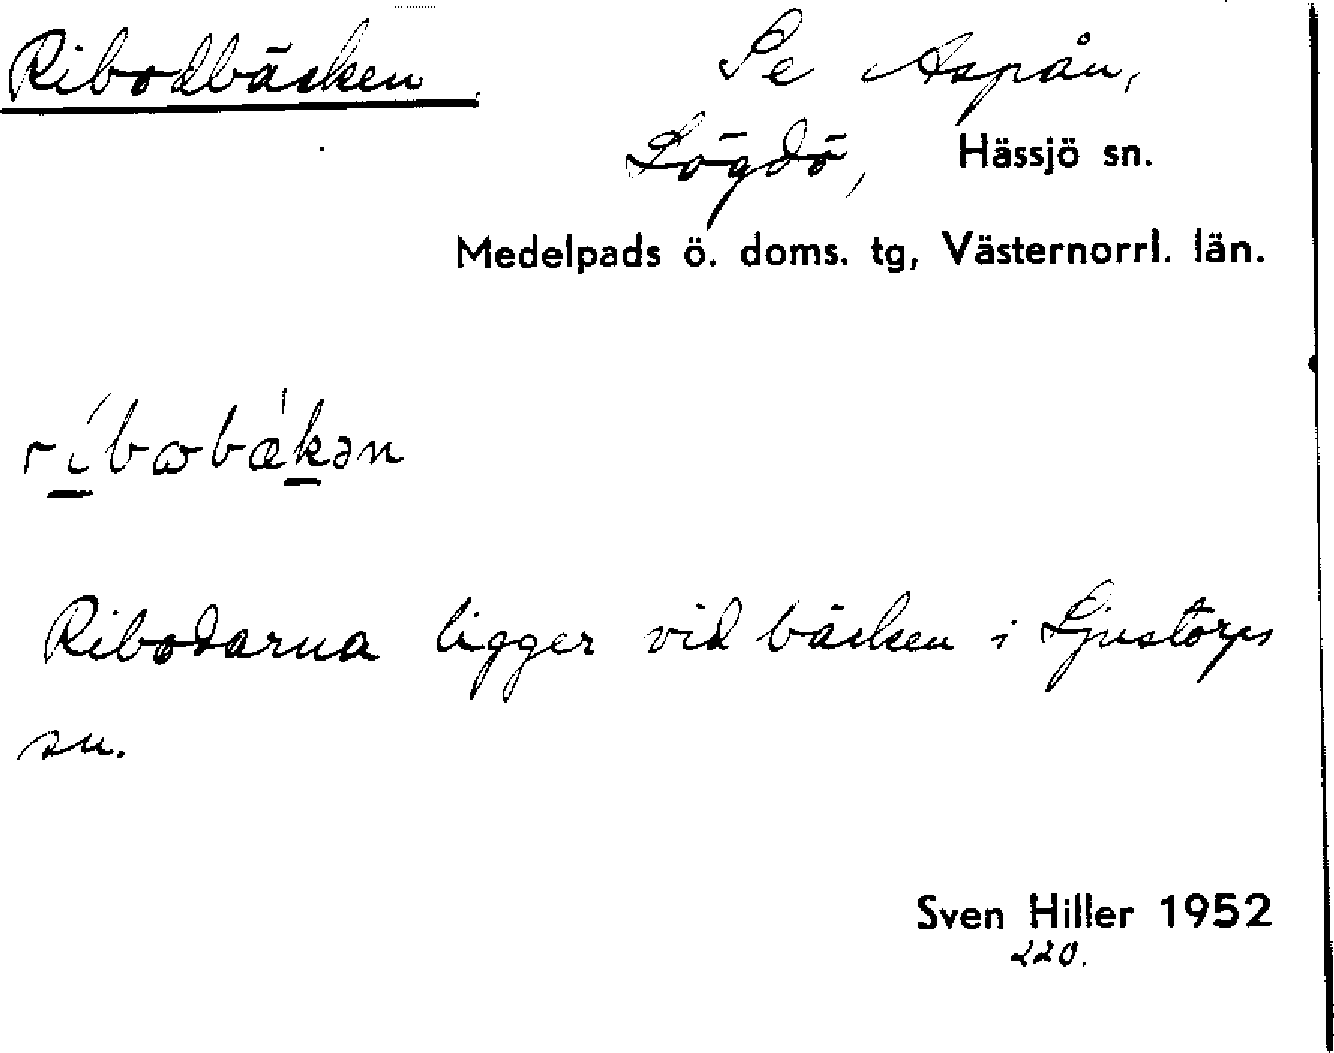 Ribodbäcken. Se Aspån,
Lögdö, Hässjö sn.
Medelpads ö. doms. tg, Västernorrl. län.
ríbωbæ̀kən
Ribodarna ligger vid bäcken i Ljustorps
sn.
Sven Hiller 1952
220.